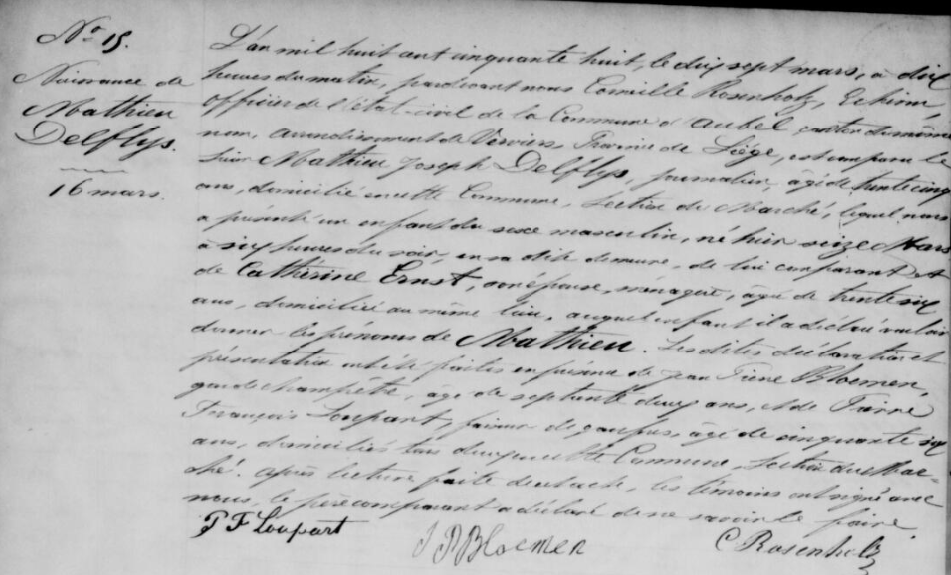 N° 15.
Naissance de
Mathieu
Delflys.
16 mars.
L'an mil huit cent cinquante huit, le dix sept mars, à dix
heures du matin, pardevant nous Camille Rosenholz, Echevin,
officier de l'état-civil de la Commune d'Aubel, canton du même
nom, arrondissement de Verviers Province de Liége, est comparu le
Sieur Mathieu Joseph Delflys, journalier, âgé de trente cinq
ans, domicilié en cette Commune, Section du Marché, lequel nous
a présenté un enfant du sexe masculin, né hier seize Mars
à six heures du soir, en sa dite demeure, de lui comparant et
de Catherine Ernst, son épouse, ménagère, âgée de trente six
ans, domiciliée au même lieu, auquel enfant il a déclaré vouloir
donner les prénoms de Mathieu. Lesdites déclaration et
présentation ont été faites en présence de Jean Pierre Bloemen,
garde champêtre, âgé de septante deux ans, et de Pierre
François Loupart, faiseur de gaufres, âgé de cinquante six
ans, domiciliés tous deux en cette Commune, Section du Mar=
ché. Après lecture faite de l'acte, les témoins ont signé avec
nous, le père comparant a déclaré de ne savoir le faire.
P F Loupart
J P Bloemen
C Rosenholz